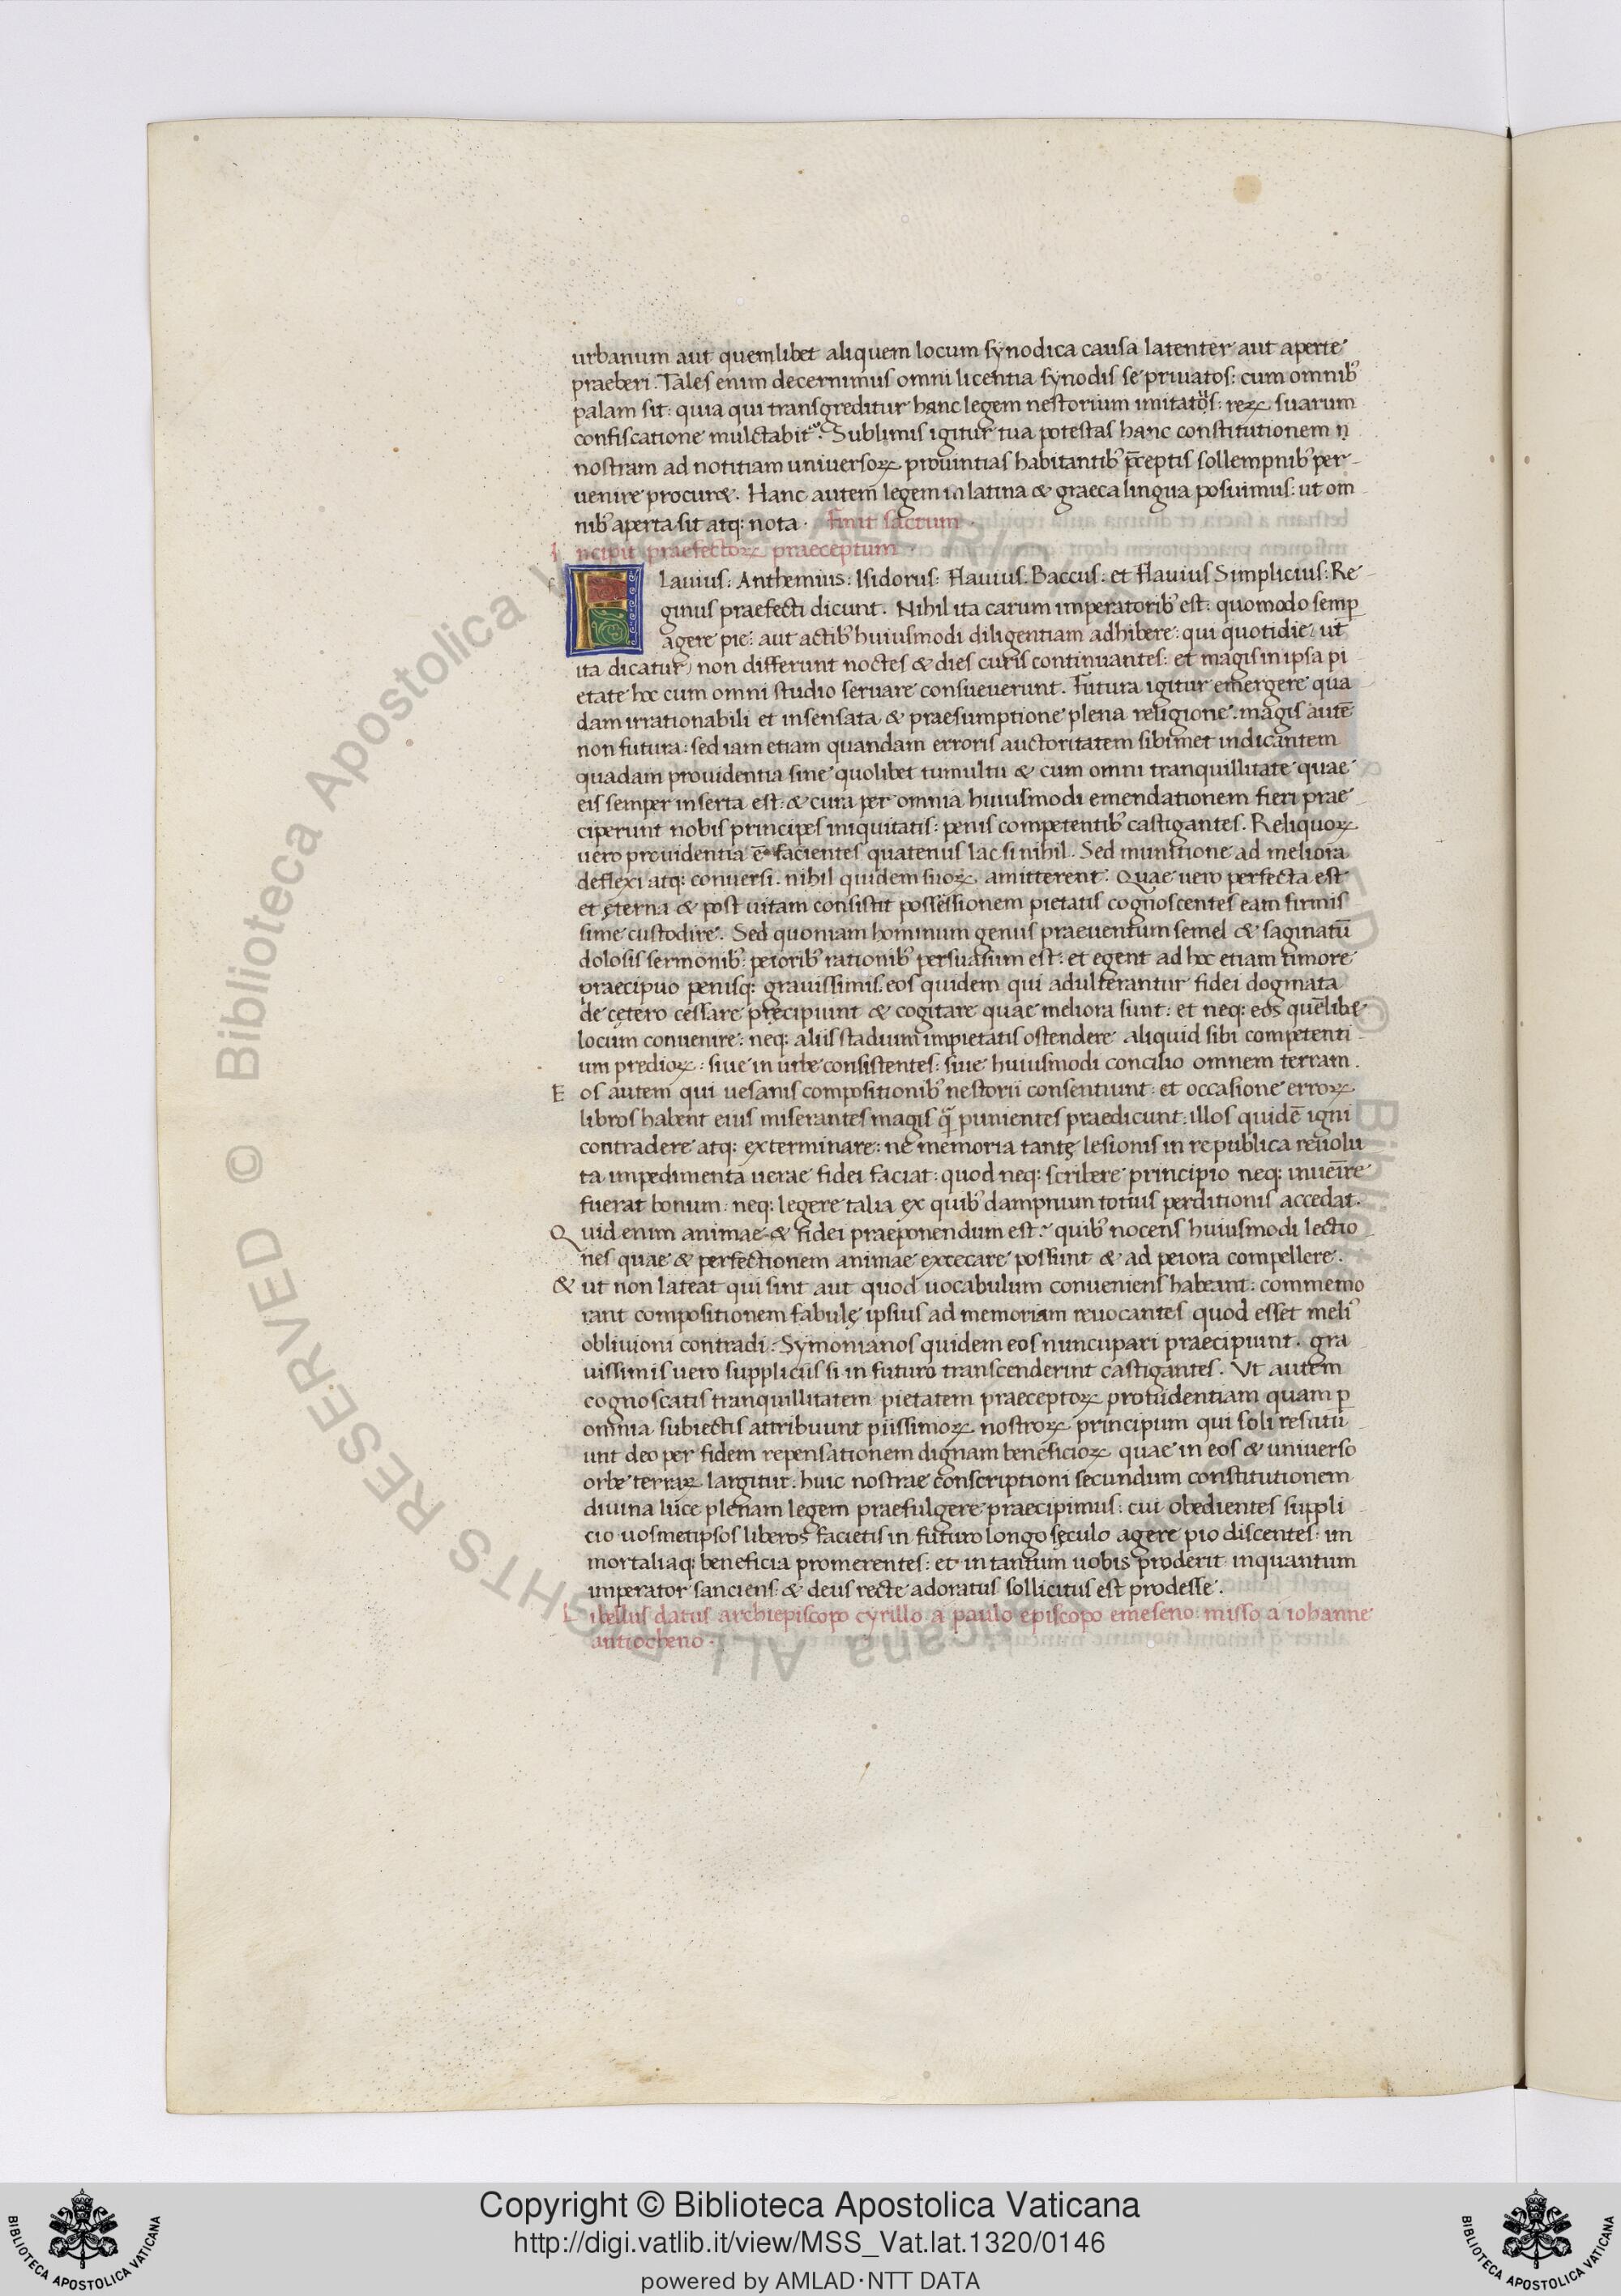 urbanum aut quemlibet aliquem locum synodica causa latenter aut aperte
praeberi. Tales enim decernimus omni licentia synodis se priuatos: cum omnib'
palam sit: quia qui transgreditur hanc legem nestorium imitatos: reꝝ suarum
confiscatione mulctabit᷑. Sublimis igitur tua potestas hanc constitutionem n
nostram ad notitiam universoꝝ provintias habitantib' p̄ceptis sollempnib' per-
venire procuret. Hanc autem legem in latina & graeca lingua posuimus: ut om
nib' aperta sit atq: nota. Finit sactum.
Incipit praefectoꝝ praeceptum.
Flavius: Anthemius: Isidorus: Flavius: Baccus: et Flavius Simplicius: Re
ginus praefecti dicunt. Nihil ita carum imperatorib' est: quomodo semp
agere pie: aut actib' huiusmodi diligentiam adhibere: qui quotidie: ut
ita dicatur, non differunt noctes & dies curis continuantes: et magis in ipsa pi
etate hoc cum omni studio servare consueverunt. Futura igitur emergere qua
dam irrationabili et insensata & praesumptione plena religione. magis autē
non futura: sed iam etiam quandam erroris auctoritatem sibimet indicantem
quadam providentia sine quolibet tumultu & cum omni tranquillitate quae
eis semper inserta est: & cura per omnia huiusmodi emendationem fieri prae
ciperunt nobis principes iniquitatis: penis competentib' castigantes. Reliquoꝝ
uero providentia ē facientes quatenus lac si nihil. Sed munitione ad meliora
deflexi atq: conversi. nihil quidem suoꝝ amitterent. Quae uero perfecta est
et ęterna & post uitam consistit possessionem pietatis cognoscentes eam firmis
sime custodire. Sed quoniam hominum genus praeventum semel & saginatū
dolosis sermonib': peiorib' rationib' persuasum est: et egent ad hoc etiam timore
praecipuo penisq: gravissimis. eos quidem qui adulterantur fidei dogmata
de cętero cessare pręcipiunt & cogitare quae meliora sunt: et neq: eos quēlibet
locum convenire: neq: aliis stadium impietatis ostendere aliquid sibi competenti
um predioꝝ: sive in urbe consistentes: sive huiusmodi concilio omnem terram.
Eos autem qui uesanis compositionib' nestorii consentiunt: et occasione erroꝝ
libros habent eius miserantes magis q̄ punientes praedicunt: illos quidē igni
contradere atq: exterminare: ne memoria tantę lesionis in republica revolu
ta impedimenta uerae fidei faciat: quod neq: scribere principio neq: invenire
fuerat bonum: neq: legere talia ex quib' dampnum totius perditionis accedat.
Quid enim animae & fidei praeponendum est? quib' nocens huiusmodi lectio
nes quae & perfectionem animae excecare possunt & ad peiora compellere.
& ut non lateat qui sint aut quod uocabulum conveniens habeant: commemo
rant compositionem fabulę ipsius ad memoriam revocantes quod esset meli'
oblivioni contradi: Symonianos quidem eos nuncupari praecipiunt. gra
vissimis uero suppliciis si in futuro transcenderint castigantes. Ut autem
cognoscatis tranquillitatem pietatem praeceptoꝝ providentiam quam p
omnia subiectis attribuunt piissimoꝝ nostroꝝ principum qui soli restitu
unt deo per fidem repensationem dignam beneficioꝝ quae in eos & universo
orbe terraꝝ largitur: huic nostrae conscriptioni secundum constitutionem
divina luce plenam legem praefulgere praecipimus: cui obedientes suppli
cio uosmetipsos liberos facietis in futuro longo sęculo agere pio discentes: im
mortaliaq: beneficia promerentes: et in tantum uobis proderit inquantum
imperator sanciens & deus recte adoratus sollicitus est prodesse.
Libellus datus archiepiscopo cyrillo a paulo episcopo emeseno misso a iohanne
antiocheno.
Copyright © Biblioteca Apostolica Vaticana
http://digi.vatlib.it/view/MSS_Vat.lat.1320/0146
powered by AMLAD·NTT DATA